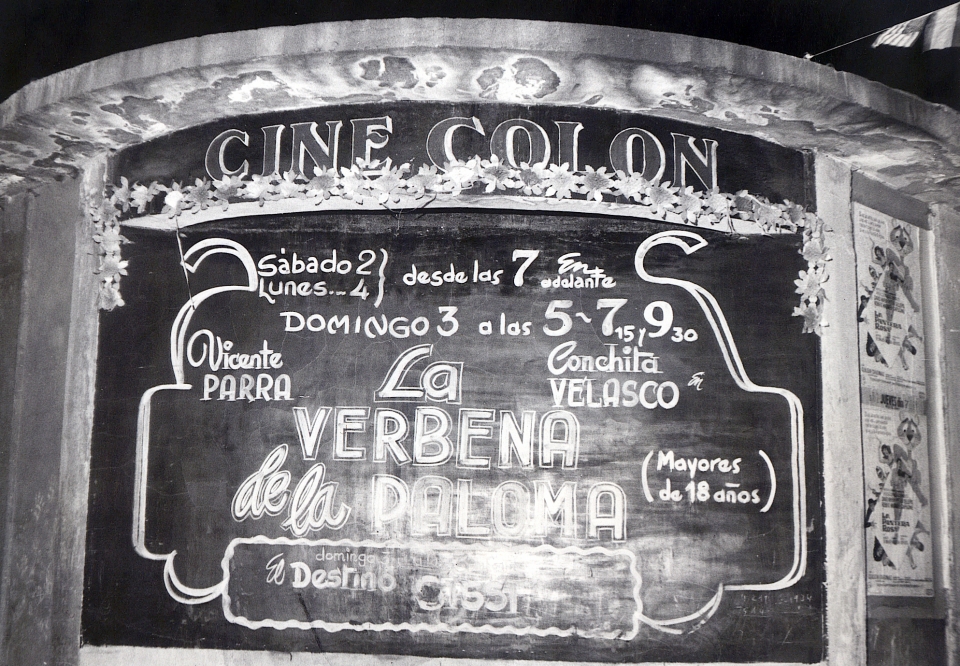 CINE COLON
Sábado 2
Lunes... 4
desde las 7 En adelante
DOMINGO 3 a las 5 ~ 7,15 y 9,30
Vicente
PARRA
Conchita
VELASCO en
La
VERBENA
de la PALOMA
(Mayores
de 18 años)
domingo
El Destino
Sissi